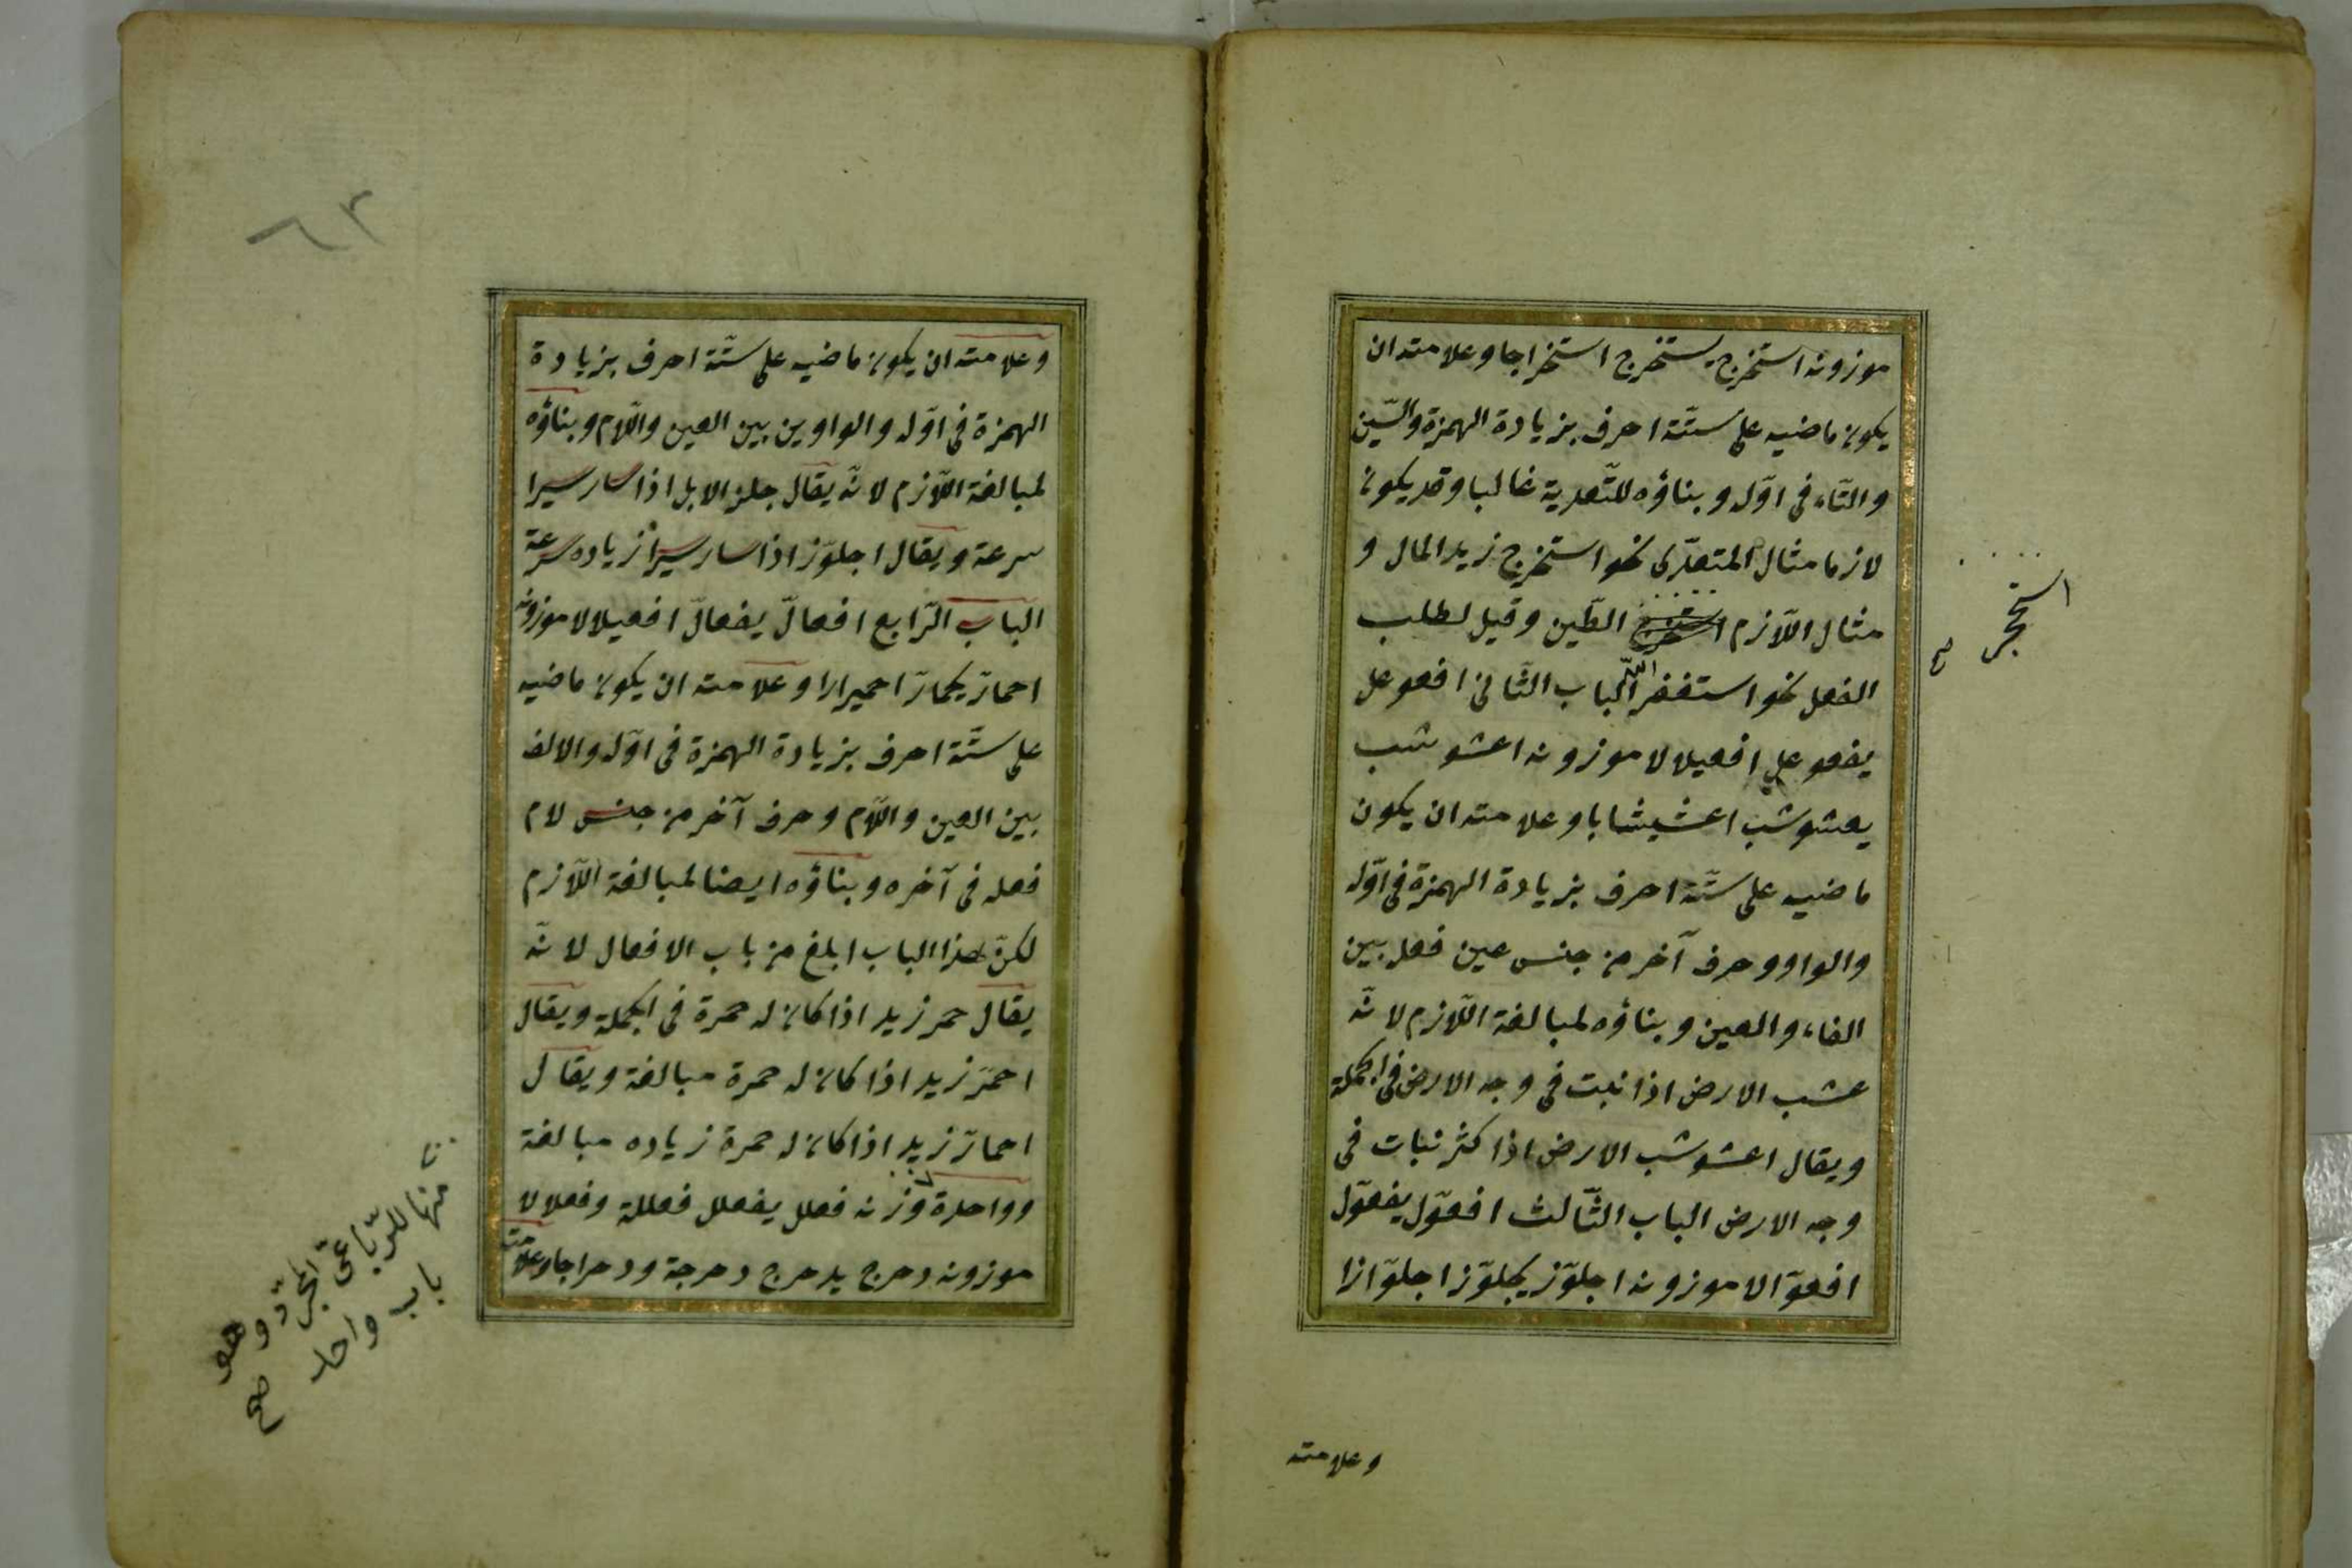 موزونه استخرج يستخرج استخراجا وعلامته ان
يكون ماضيه على ستّة احرف بزيادة الهمزة والسّين
والتّاء فى اوّله وبناؤه للتّعدية غالبا وقد يكون
لازما مثال المتعدّى نحو استخرج زيد المال و
مثال اللّازم استخرج الطّين وقيل لطلب
استحجر
صح
الفعل نحو استغفر اللّه الباب الثّانى افعوعل
يفعوعل افعيلالا موزونه اعشوشب
يعشوشب اعشيشابا وعلامته ان يكون
ماضيه على ستّة احرف بزيادة الهمزة فى اوّله
والواو وحرف آخر من جنس عين فعله بين
الفاء والعين وبناؤه لمبالغة اللّازم لانّه
عشب الارض اذا نبت فى وجه الارض فى الجملة
ويقال اعشوشب الارض اذا كثر نبات فى
وجه الارض الباب الثّالث افعوّل يفعوّل
افعوّالا موزونه اجلوّز يجلوّز اجلوّازا
وعلامته
٦٣
وعلامته ان يكون ماضيه على ستّة احرف بزيادة
الهمزة فى اوّله والواوين بين العين واللّام وبناؤه
لمبالغة اللّازم لانّه يقال جلز الابل اذا سار سيرا
سرعة ويقال اجلوّز اذا سار سيرا زياده سرعة
الباب الرّابع افعالّ يفعالّ افعيلالا موزونه
احمارّ يحمارّ احميرارا وعلامته ان يكون ماضيه
على ستّة احرف بزيادة الهمزة فى اوّله والالف
بين العين واللّام وحرف آخر من جنس لام
فعله فى آخره وبناؤه ايضا لمبالغة اللّازم
لكنّ هذا الباب ابلغ من باب الافعال لانّه
يقال حمر زيد اذا كان له حمرة فى الجملة ويقال
احمرّ زيد اذا كان له حمرة مبالغة ويقال
احمارّ زيد اذا كان له حمرة زياده مبالغة
وواحدة وزنه فعلل يفعلل فعللة وفعلالا
موزونه دحرج يدحرج دحرجة ودحراجا وعلامته
منها للرّباعىّ المجرّد وهو
باب واحد
صح